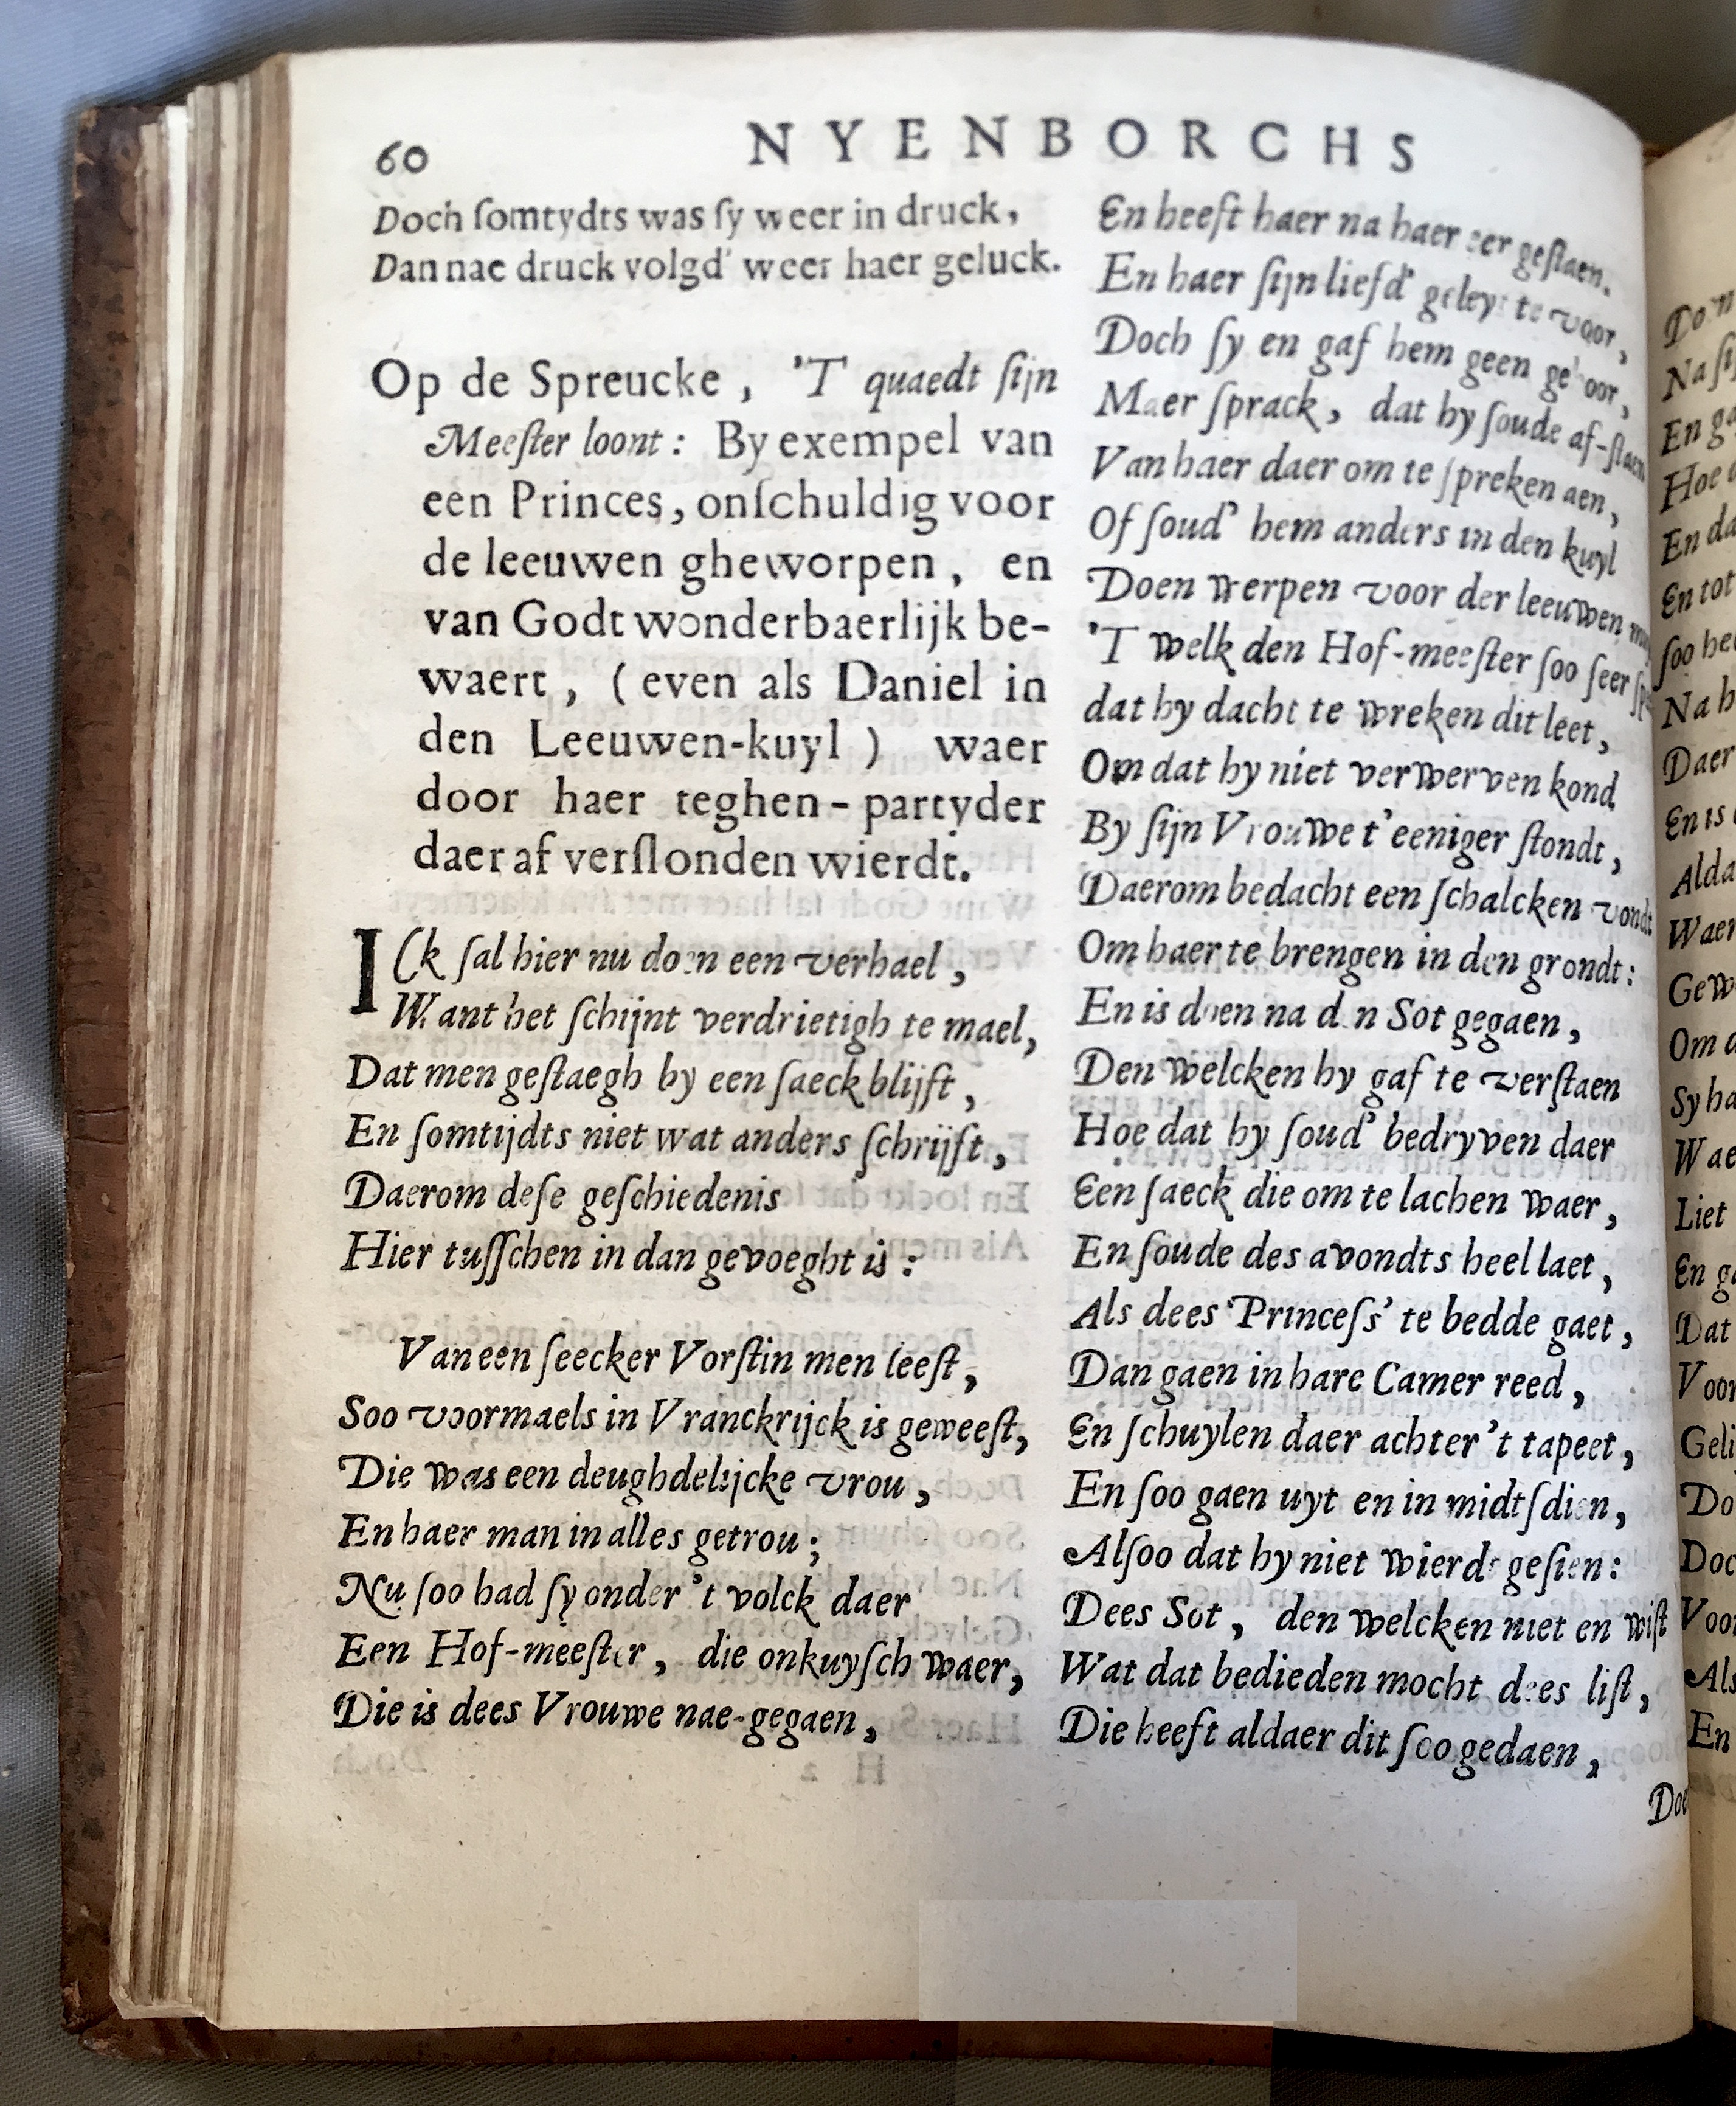 60
NYENBORCHS
Doch ſomtydts was ſy weer in druck,
Dan nae druck volgd' weer haer geluck.
Op de Spreucke, 'T quaedt ſijn
Meeſter loont: By exempel van
een Princes, onſchuldig voor
de leeuwen gheworpen, en
van Godt wonderbaerlijk be-
waert, (even als Daniel in
den Leeuwen-kuyl) waer
door haer teghen-partyder
daer af verſlonden wierdt.
ICk ſal hier nu doen een verhael,
Want het ſchijnt verdrietigh te mael,
Dat men geſtaegh by een ſaeck blijft,
En ſomtijdts niet wat anders ſchrijft,
Daerom deſe geſchiedenis
Hier tuſſchen in dan gevoeght is:
Van een ſeecker Vorſtin men leeſt,
Soo voormaels in Vranckrijck is geweeſt,
Die was een deughdelijcke vrou,
En haer man in alles getrou;
Nu ſoo had ſy onder 't volck daer
Een Hof-meeſter, die onkuyſch waer,
Die is dees Vrouwe nae-gegaen,
En heeft haer na haer eer geſtaen.
En haer ſijn liefd' geleyt te voor,
Doch ſy en gaf hem geen gehoor,
Maer ſprack, dat hy ſoude af-ſtaen
Van haer daer om te ſpreken aen,
Of ſoud' hem anders in den kuyl
Doen werpen voor der leeuwen
'T welk den Hof-meeſter ſoo ſeer
dat hy dacht te wreken dit leet,
Om dat hy niet verwerven kond
By ſijn Vrouwe t'eeniger ſtondt,
Daerom bedacht een ſchalcken vondt
Om haer te brengen in den grondt:
En is doen na den Sot gegaen,
Den welcken hy gaf te verſtaen
Hoe dat hy ſoud' bedryven daer
Een ſaeck die om te lachen waer,
En ſoude des avondts heel laet,
Als dees Princeſs' te bedde gaet,
Dan gaen in hare Camer reed,
En ſchuylen daer achter 't tapeet,
En ſoo gaen uyt en in midtſdien,
Alſoo dat hy niet wierdt geſien:
Dees Sot, den welcken niet en wiſt
Wat dat bedieden mocht dees liſt,
Die heeft aldaer dit ſoo gedaen,